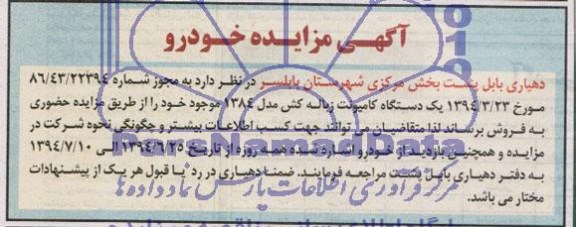 آگهی مزایده خودرو
دهیاری بابل پشت بخش مرکزی شهرستان بابلسر در نظر دارد به مجوز شماره ۸۶/۴۳/۲۲۳۹۴
مورخ ۱۳۹۴/۳/۲۳ یک دستگاه کامیونت زباله کش مدل ۱۳۸۴ موجود خود را از طریق مزایده حضوری
به فروش برساند لذا متقاضیان می توانند جهت کسب اطلاعات بیشتر و چگونگی نحوه شرکت در
مزایده و همچنین بازدید از خودرو اشاره شده همه روزه از تاریخ ۱۳۹۴/۶/۲۵ الی ۱۳۹۴/۷/۱۰
به دفتر دهیاری بابل پشت مراجعه فرمایند. ضمنا دهیاری در رد یا قبول هر یک از پیشنهادات
مختار می باشد.
ParsNamadData
مرکز فرآوری اطلاعات پارس نماد داده ها